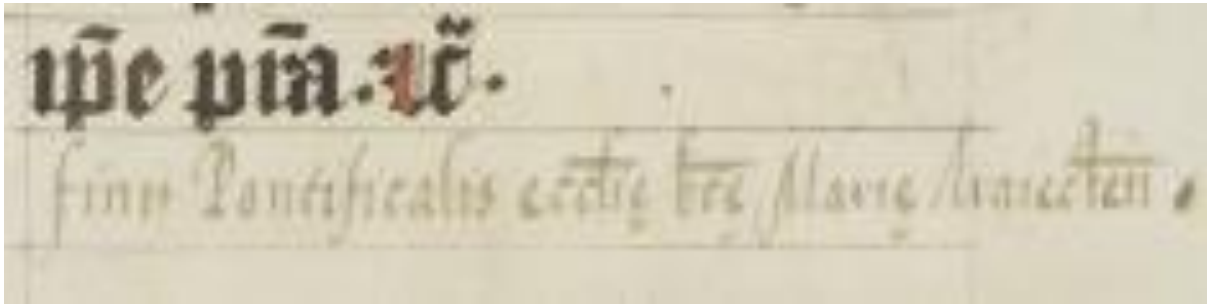 ip̄e pīra. ⁊c̃.
finis Pontificalis eccl̄ie̜ bt̄e̜ Marie̜ traiecten̄.